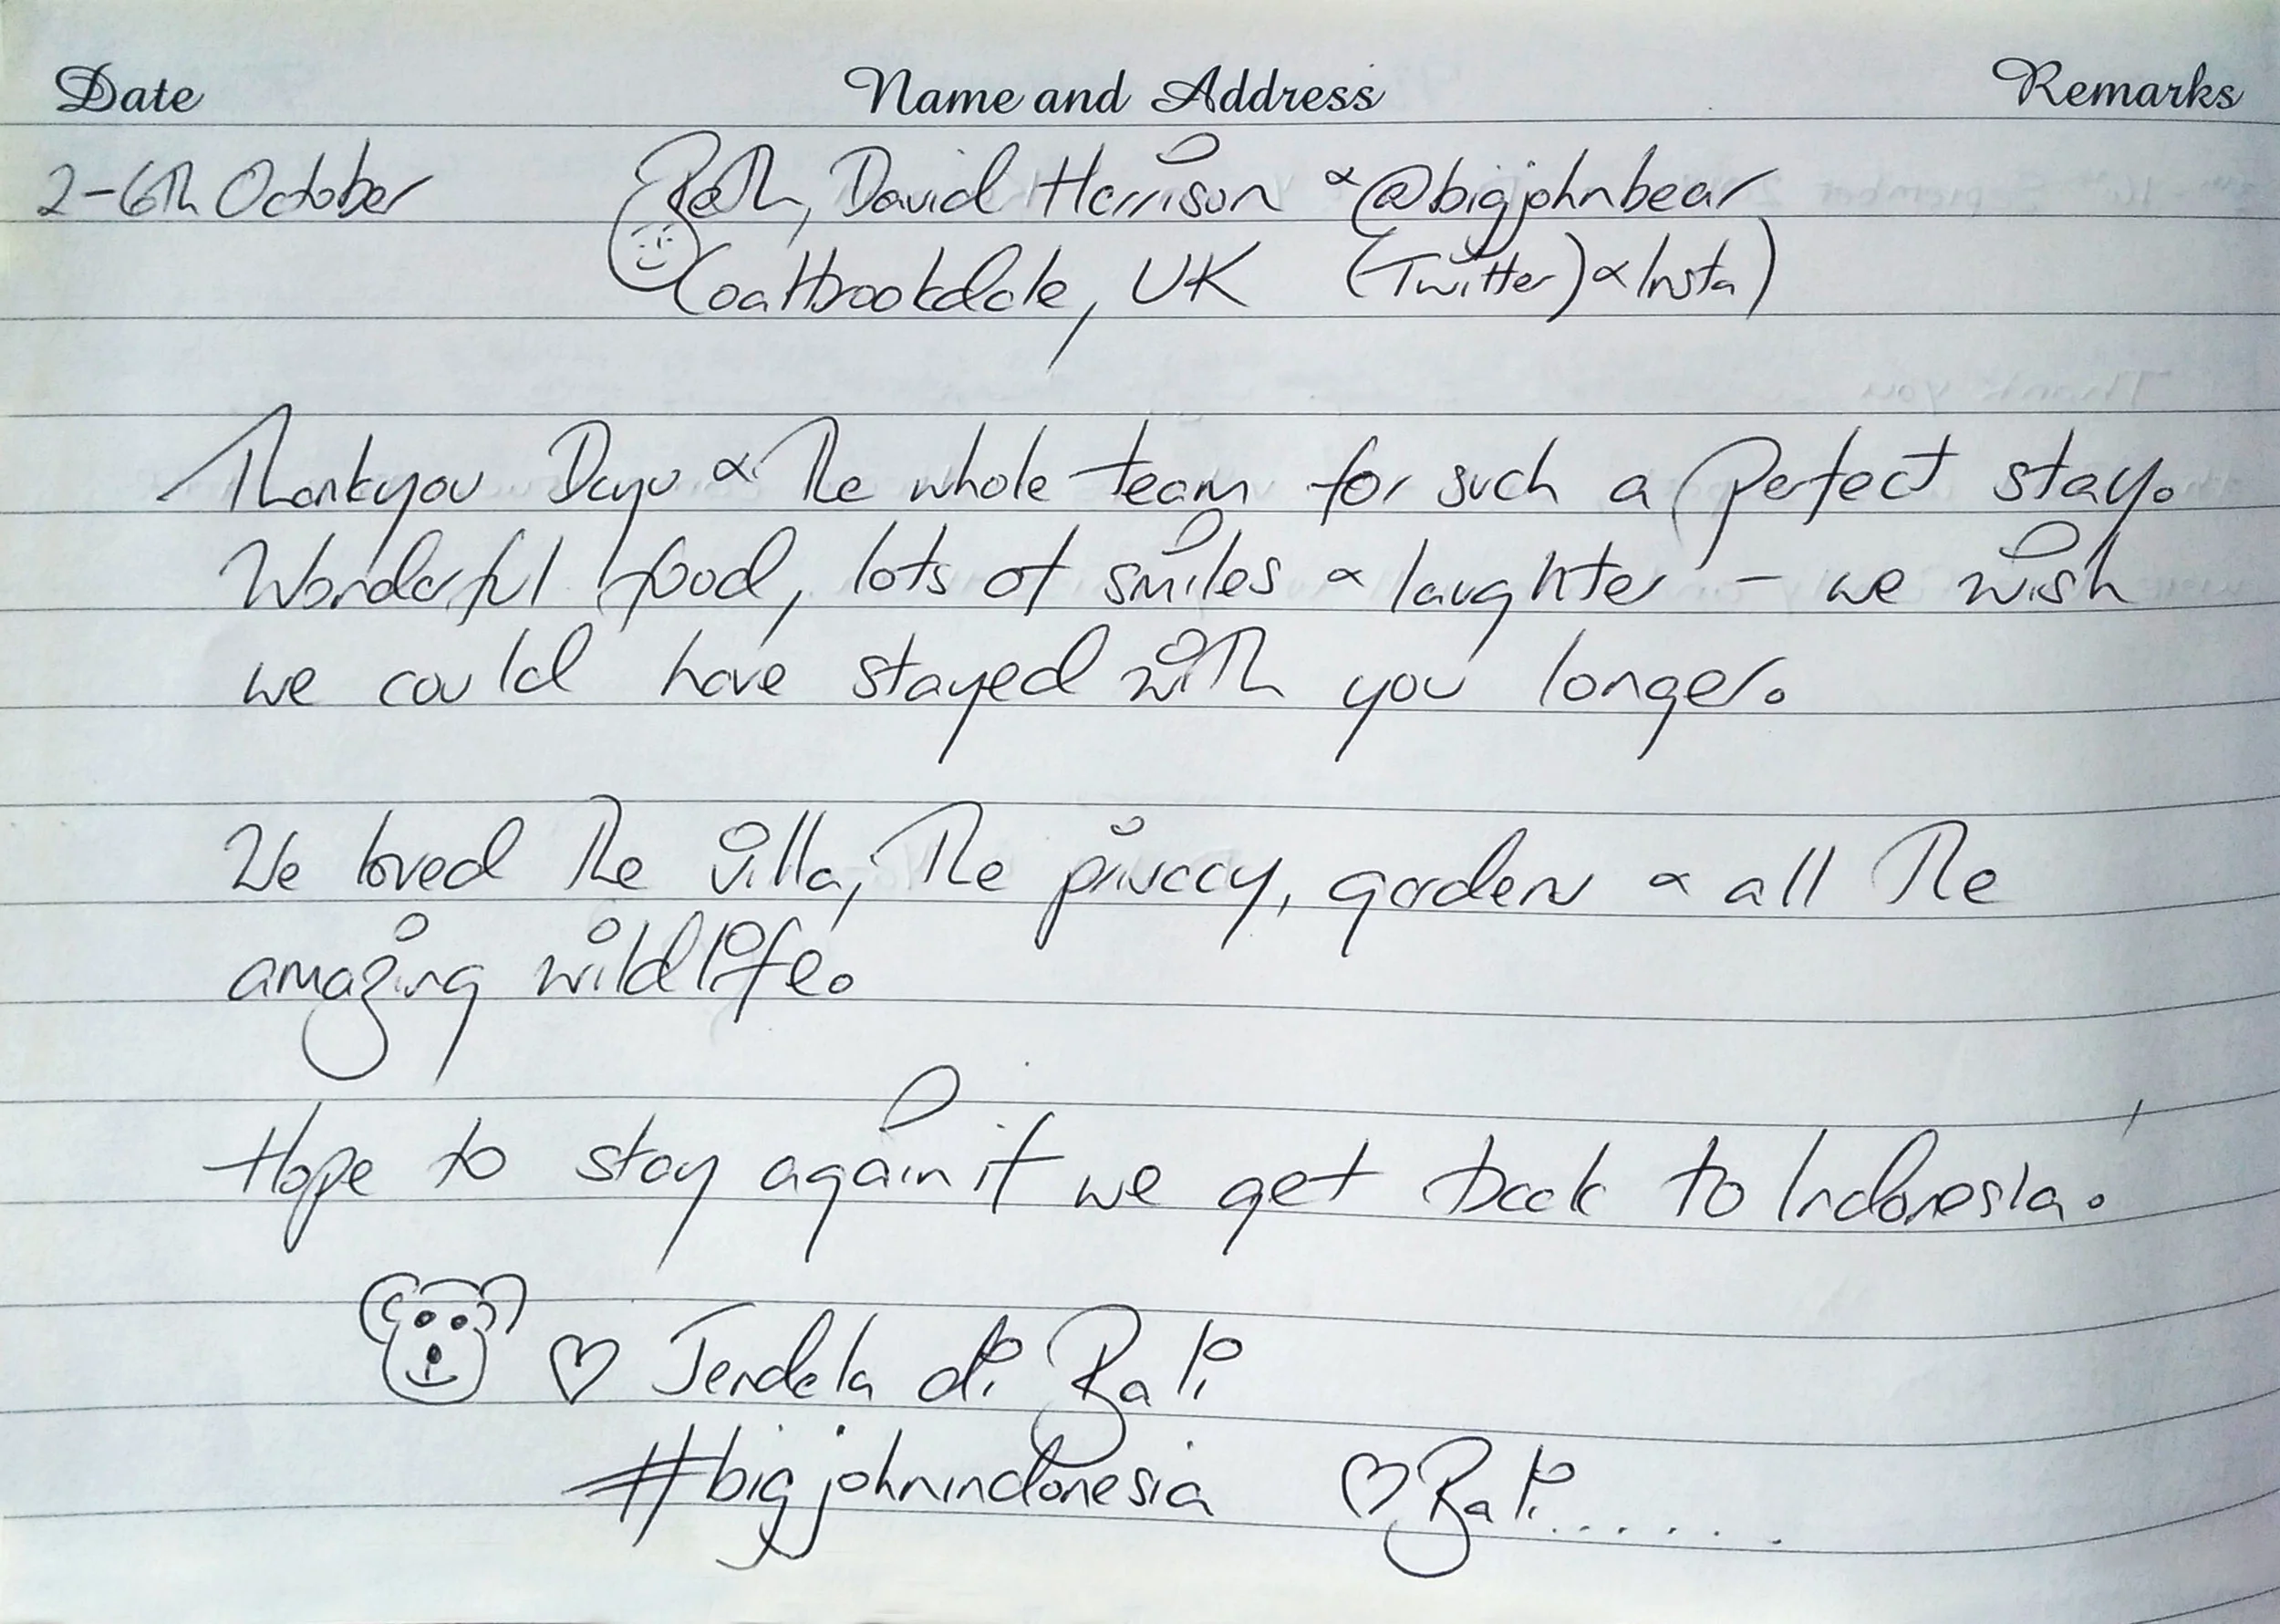 Date Name and Address Remarks
2-6th October Beth, David Harrison & @bigjohnbear
Coalbrookdale, UK (Twitter) & Insta)
Thankyou Dayu & the whole team for such a perfect stay.
Wonderful food, lots of smiles & laughter - we wish
we could have stayed with you longer.
We loved the villa, the privacy, garden & all the
amazing wildlife.
Hope to stay again if we get back to Indonesia.
♡ Jendela di Bali
#bigjohnindonesia ♡ Bali......